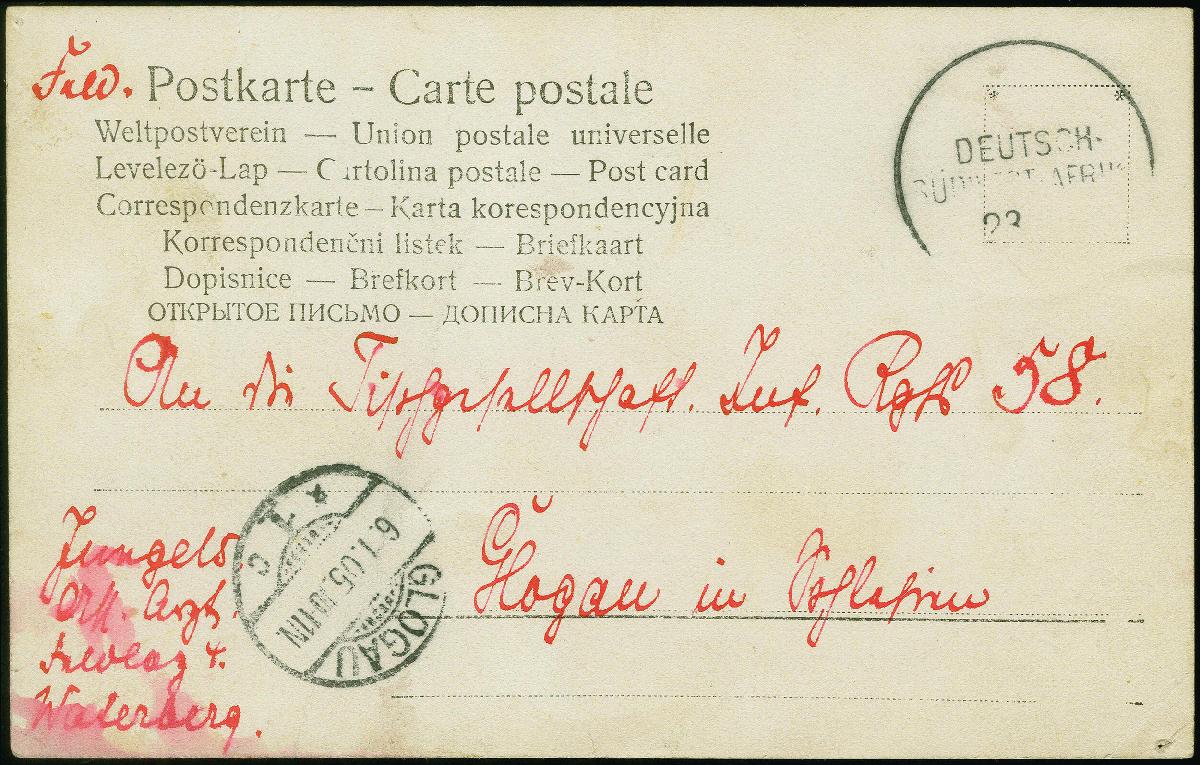 Feld. Postkarte – Carte postale
Weltpostverein — Union postale universelle
Levelező-Lap — Cartolina postale — Post card
Correspondenzkarte – Karta korespondencyjna
Korrespondenční listek — Briefkaart
Dopisnice — Brefkort — Brev-Kort
ОТКРЫТОЕ ПИСЬМО — ДОПИСНА КАРТА
DEUTSCH-
SÜDWEST-AFRIK
23
An die Tischgesellschaft. Inf. Rgts 58.
Glogau in Schlesien
GLOGAU
6.1.05.
* 1 c
Arzt
Feldlaz 4.
Waterberg.